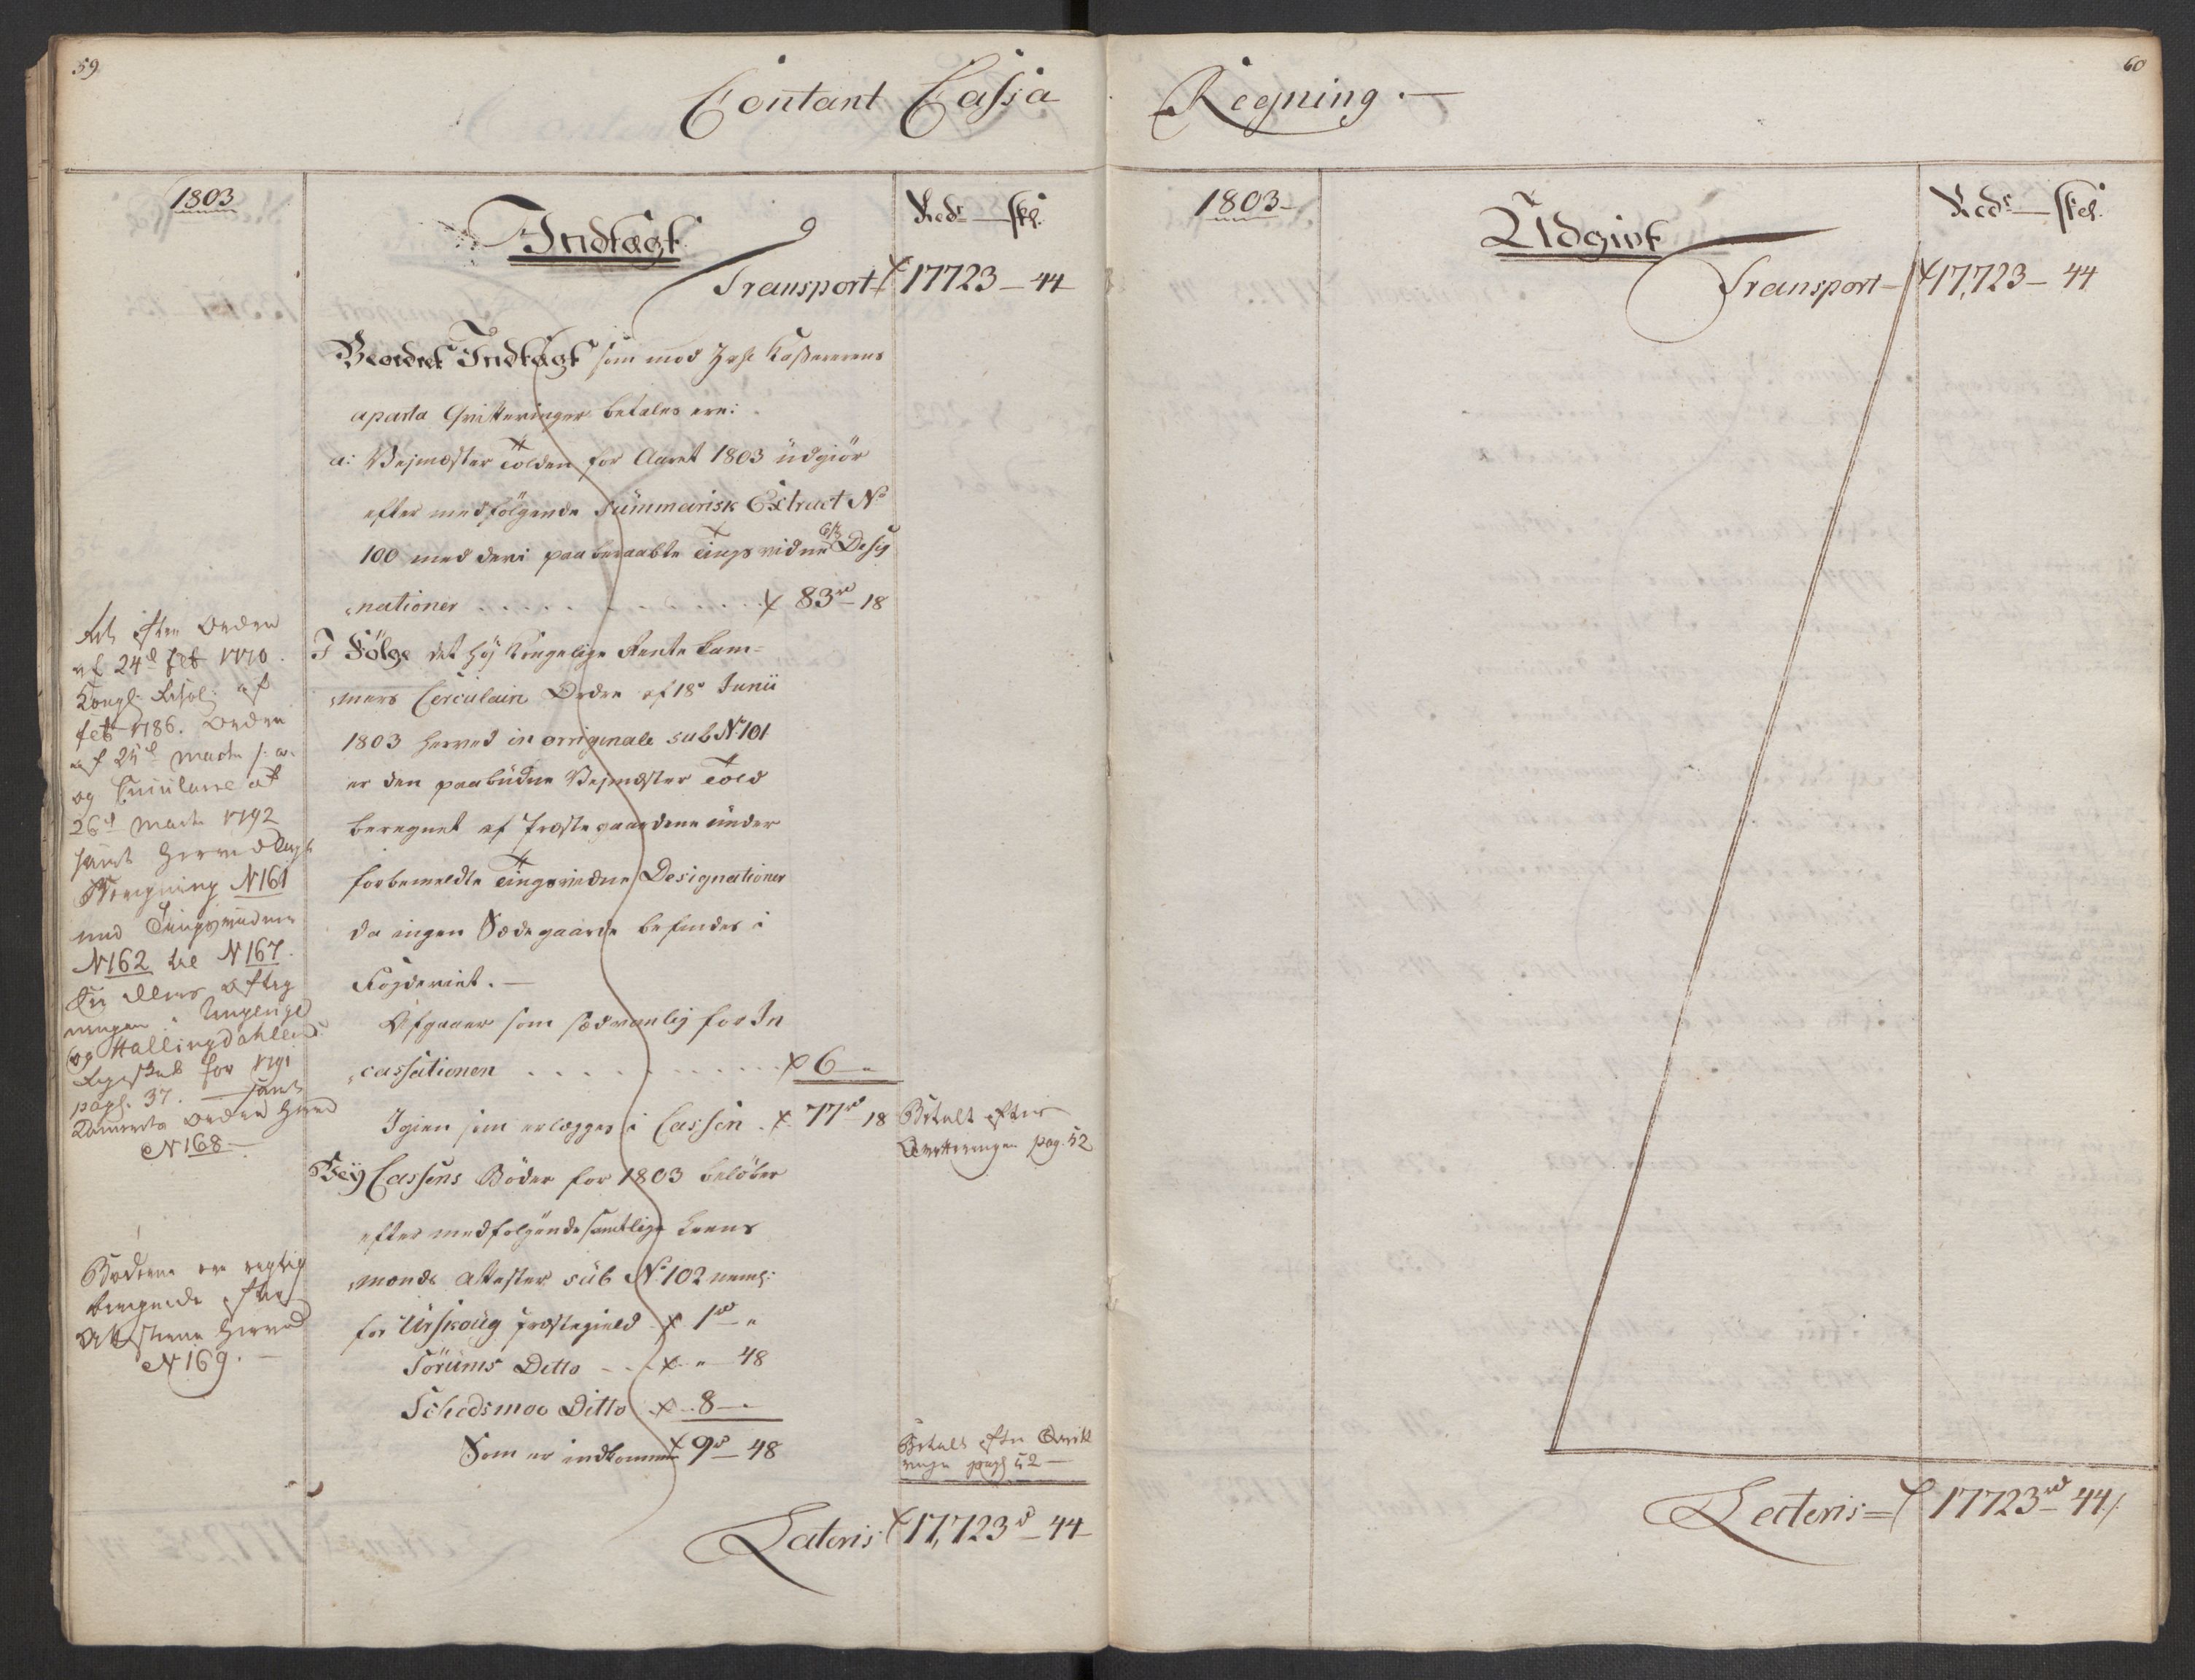 59
60
Contant Cassa Regning.
1803
Indtægt
Rdr. — skl.
Transport 17723 — 44
Beordret Indtægt som mod Kassererens
aparta Qvitteringer betales ere:
a: Vejmester Tolden for Aaret 1803 üdgiör
efter medfölgende Summarisk Extract No
100 med deri paaberaabte Tingsvidne Desig
nationer . . . . . 83 rd — 18
I Fölge det Höj Kongelige Rente Kam-
mers Circulair Ordre af 18 Junii
1803 herved in originale sub No 101
er den paabüdne Vejmester Told
beregnet af Præstegaardene ünder
forbemeldte Tingsvidne Designationer
da ingen Sædegaarde befindes i
Fogderiet. —
Afgaaer som sædvanlig for In
cassationen . . . . . 6 — "
Igien som erlægges i Cassen . 77 rd — 18
Cassens Böder for 1803 belöber
efter medfolgende samtlige Leens
mænds Attester süb No 102 neml:
for Urskoüg Præstegield 1 rd — "
Sörüms Ditto — " — 48
Schedsmoe Ditto 8 — "
Som er indkommen 9 rd — 48
Lateris 17,723 rd — 44
efter Ordre
af 24d feb 1770.
Kongl. Resol: af
feb 1786. Ordre
af 25d Marti s. a.
og Circulaire af
26d Marti 1792
samt herved
Beregning N 161
med Tingsvidner
N 162 til N 167.
og Hallingdahlens
Regnskab for 1791
pag. 37. — samt
Ordre herved
N 168 —
Böderne ere rigtig
beregnede efter
Attesterne herved
N 169. —
Betalt efter
Qvitteringen pag. 52
Betalt efter Qvitt
ringen pag 52 —
1803
Udgivt
Rdr. — skl.
Transport — 17,723 — 44
Lateris = 17723 rd — 44